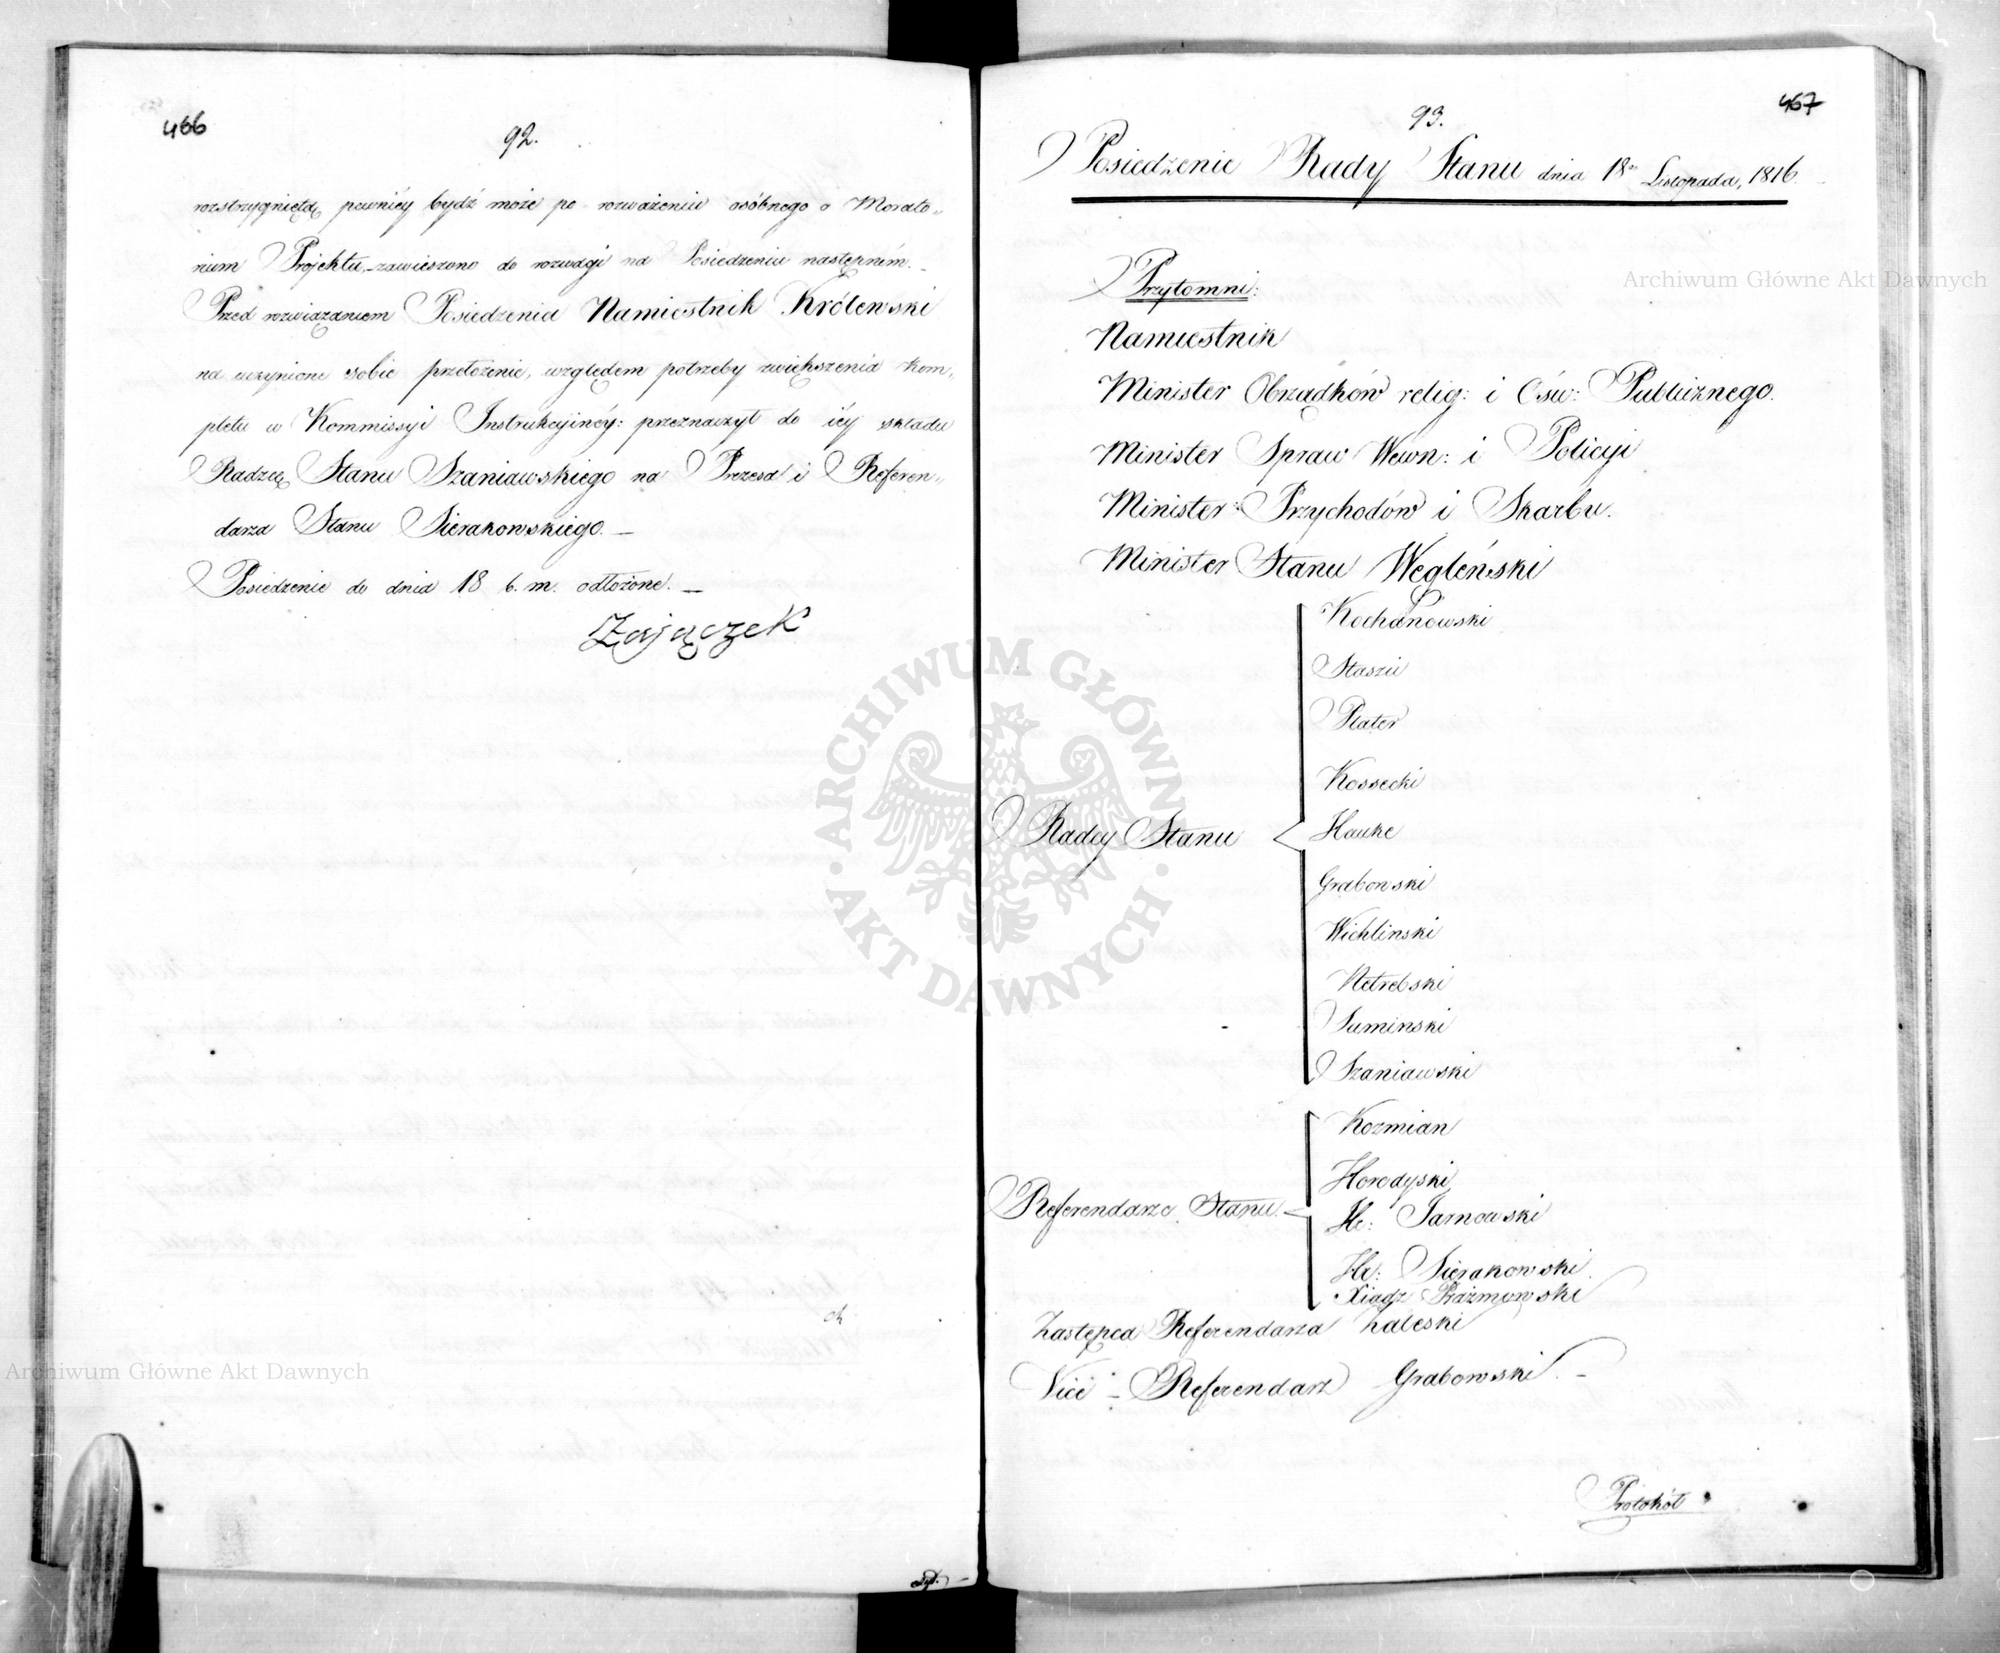 466
92.
rozstrzygniętą pewniéy bydź może po rozważeniu osóbnego o Morato„
rium Projektu,–zawieszono do rozwagi na Posiedzeniu następném. –
Przed rozwiązaniem Posiedzenia Namiestnik Królewski
na uczynione sobie przełożenie, względem potrzeby zwiększenia Kom„
pletu w Kommissyi Instrukcyinéy: przeznaczył do iéy składu
Radzcę Stanu Szaniawskiego na Prezesa i Referen„
darza Stanu Sierakowskiego. –
Posiedzenie do dnia 18 b. m. odłożone. –
Zajączek
467
93.
Posiedzenie Rady Stanu dnia 18go Listopada, 1816.
Przytomni:
Namiestnik
Minister Obrządków relig: i Ośw: Publicznego.
Minister Spraw Wewn: i Policyi
Minister Przychodów i Skarbu.
Minister Stanu Węgleński
Radcy Stanu
Kochanowski
Staszic
Plater
Kossecki
Hauke
Grabowski
Wichlinski
Netrebski
Suminski
Szaniawski
Referendarze Stanu.
Kozmian
Horodyski
Hr: Tarnowski
Hr: Sierakowski.
Xiądz Prażmowski
Zastępca Referendarza Zaleski
Vice – Referendarz Grabowski. –
Protokół
Archiwum Główne Akt Dawnych
Archiwum Główne Akt Dawnych
ARCHIWUM GŁÓWNE AKT DAWNYCH